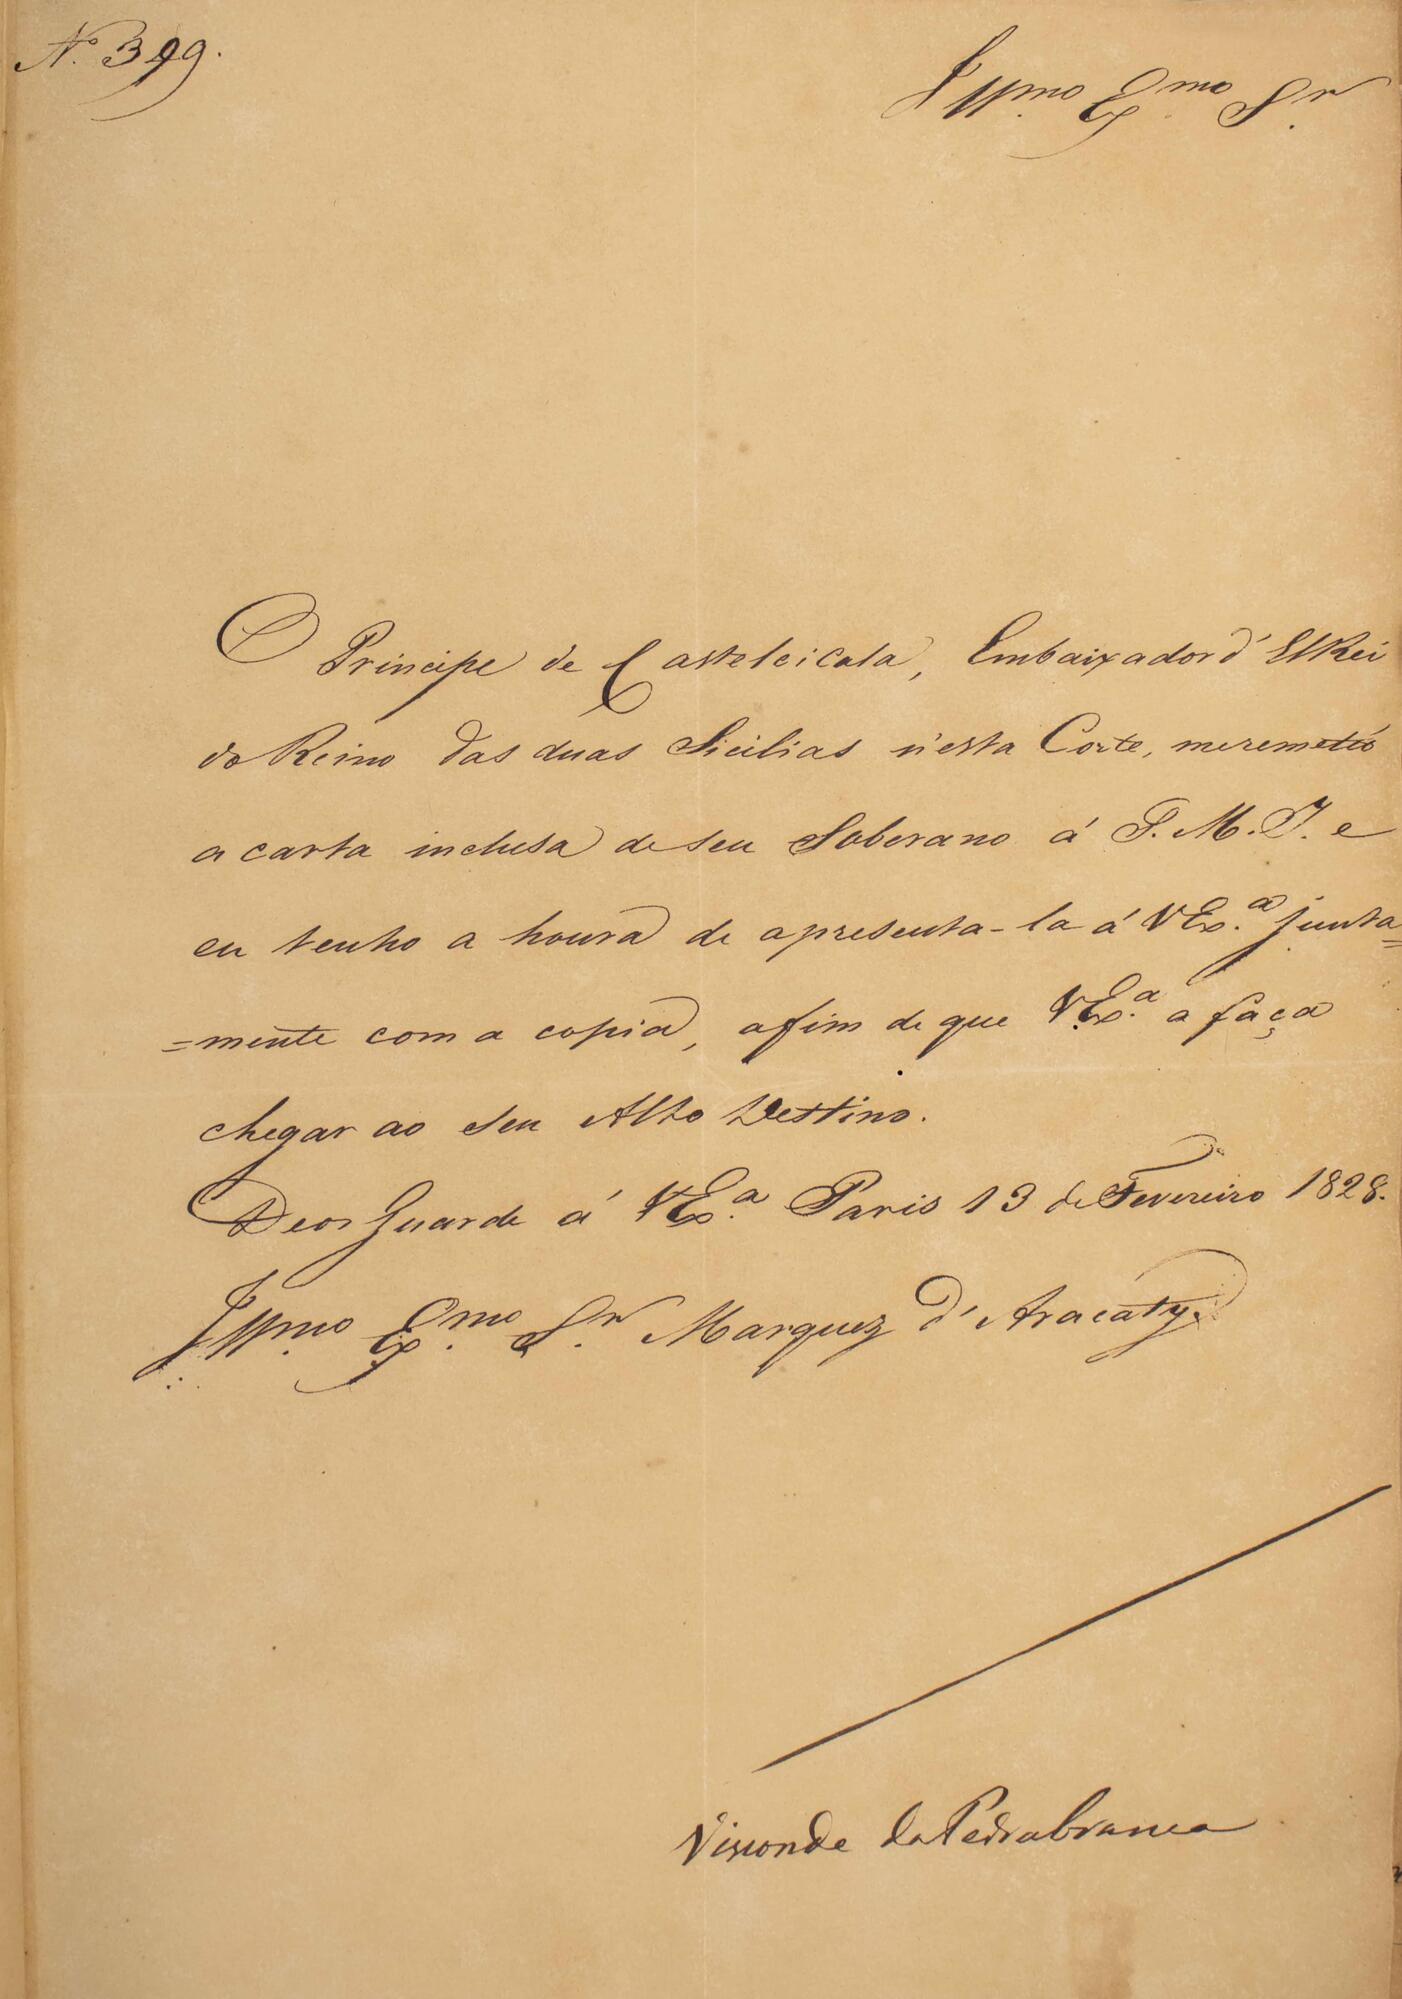 N.º 399.
Illmo. Exmo. Snr.
O Principe de Castelcicala, Embaixador d'ElRei
do Reino das duas Sicilias n'esta Corte, me remetió
a carta inclusa de seu Soberano á S. M. I. e
eu tenho a honra de apresenta-la á VExª. junta=
=mente com a copia, afim de que VExª. a faça
chegar ao seu Alto Destino.
Deos Guarde á VExª. Paris 13 de Fevereiro 1828.
Illmo. Exmo. Snr. Marquez d'Aracáty.
Visconde da Pedrabranca